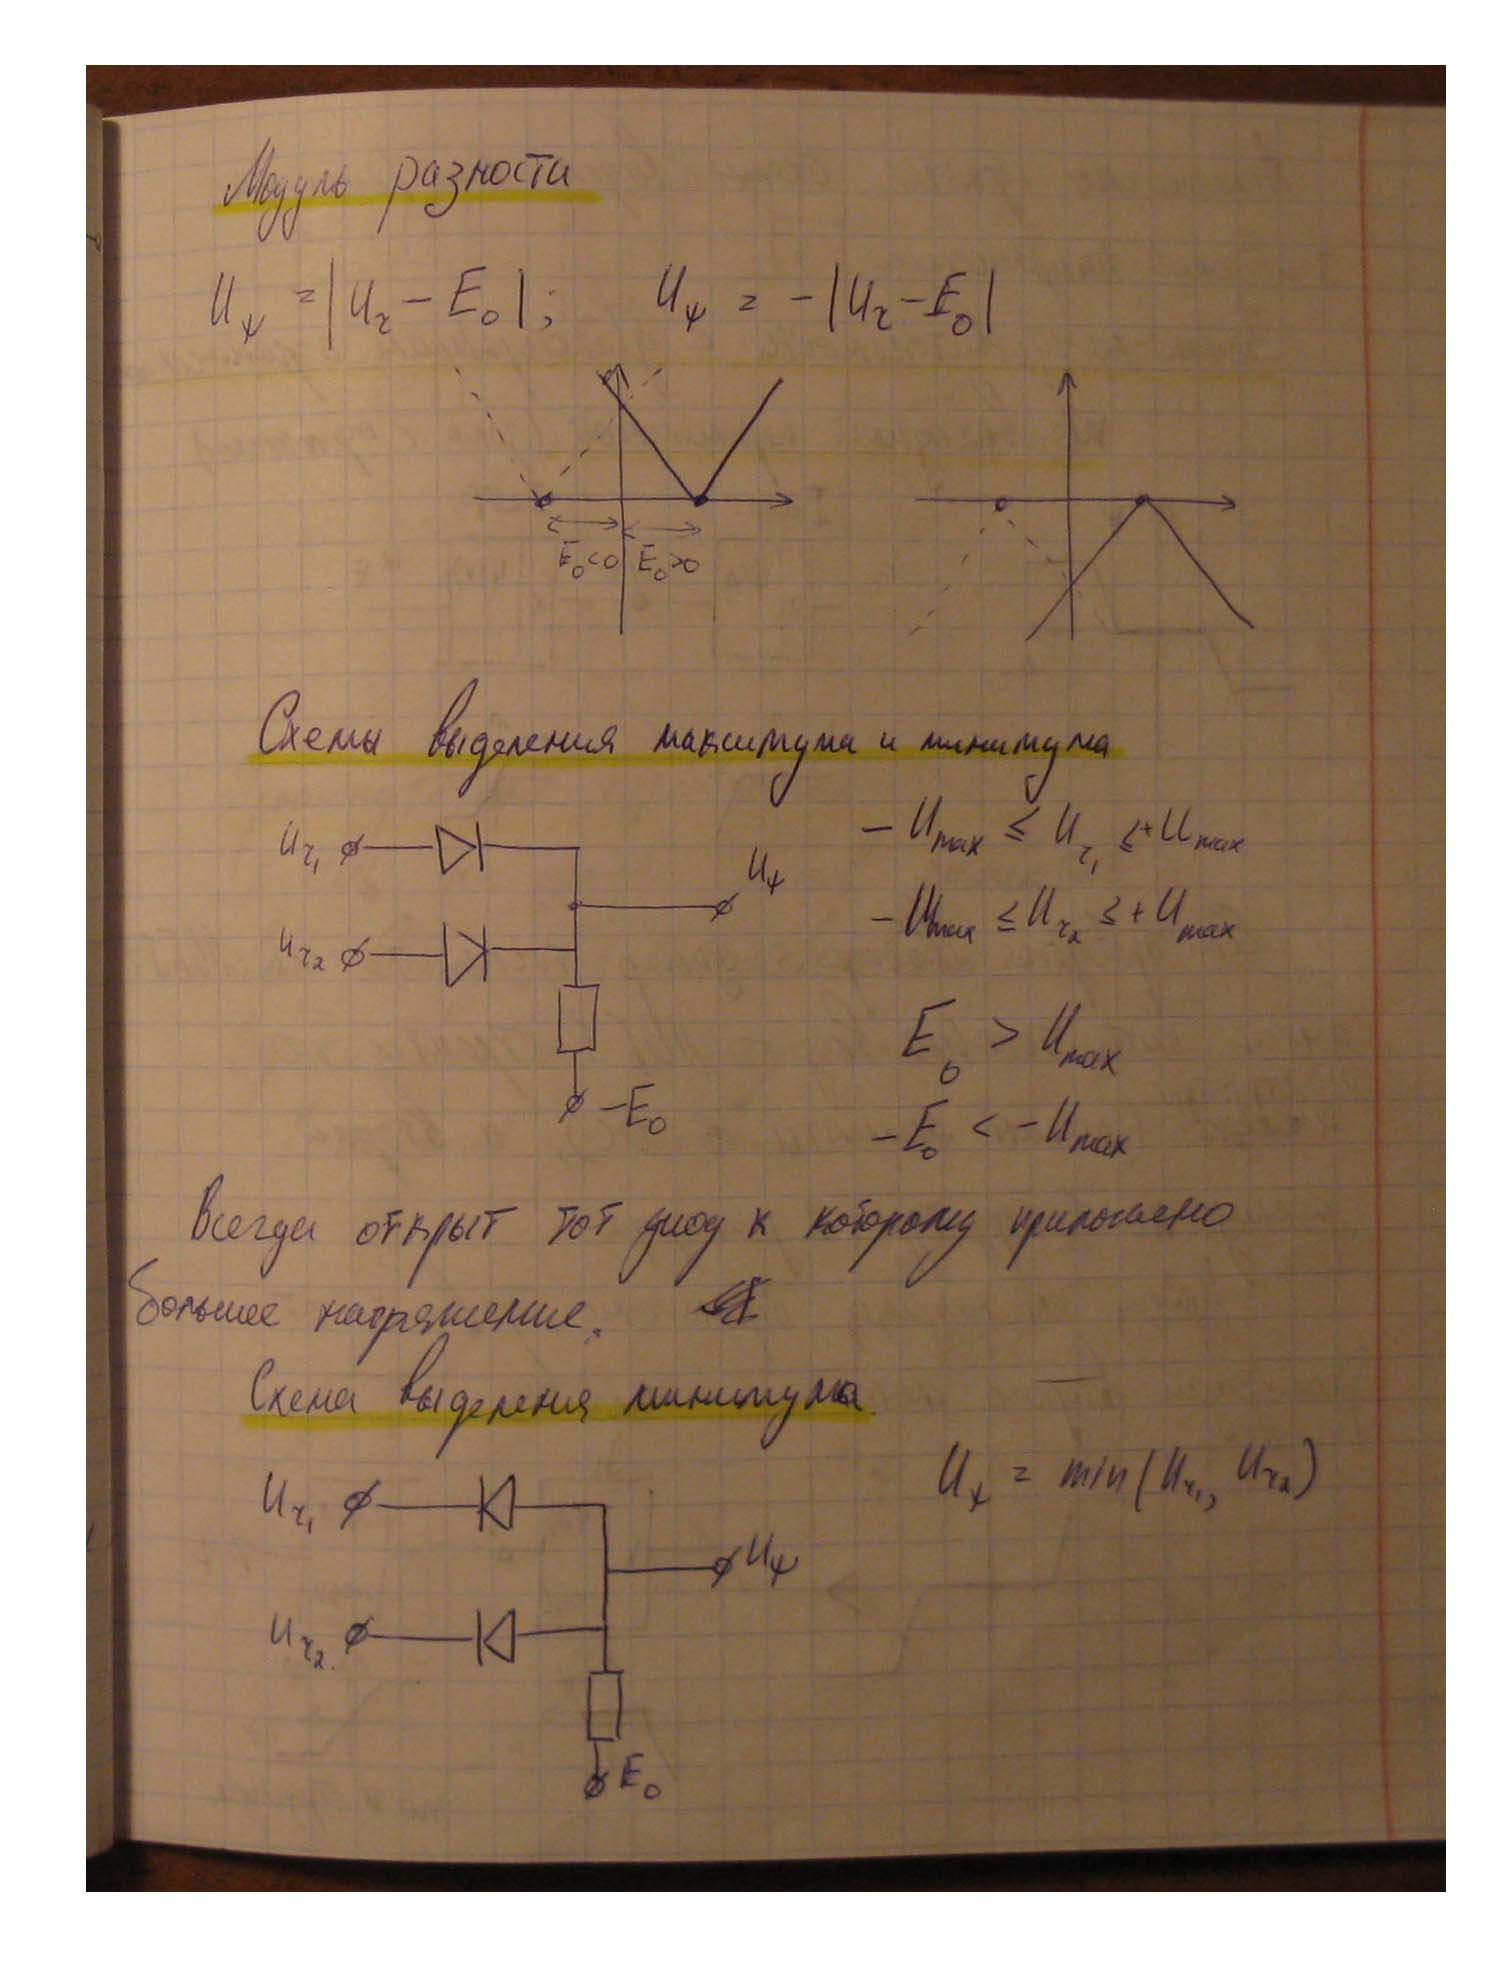 Модуль разности
U_ψ = |U_τ - E_0|; U_ψ = -|U_τ - E_0|
E_0<0 E_0>0
Схемы выделения максимума и минимума
U_τ1
U_ψ
U_τ2
-E_0
-U_max ≤ U_τ1 ≤ +U_max
-U_max ≤ U_τ2 ≤ +U_max
E_0 > U_max
-E_0 < -U_max
Всегда открыт тот диод к которому приложено
большее напряжение.
Схема выделения минимума.
U_ψ = min(U_τ1, U_τ2)
U_τ1
U_ψ
U_τ2
E_0